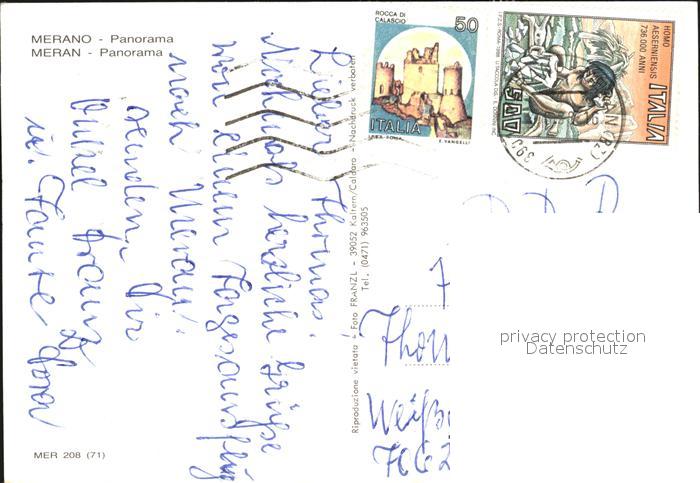 MERANO - Panorama
MERAN - Panorama
Lieber Thomas!
Nochmals herzliche Grüße
von einem Tagesausflug
nach Meran!
senden Dir
Onkel Franz
u. Tante Dora
MER 208 (71)
Riproduzione vietata - Foto FRANZL - 39052 Kaltern/Caldaro - Nachdruck verboten
Tel. (0471) 963505
ROCCA DI
CALASCIO
50
ITALIA
I.P.Z.S. ROMA
E. VANGELLI
HOMO
AESERNIENSIS
736.000 ANNI
ITALIA
500
(BZ)
Thom
Weiß
privacy protection
Datenschutz